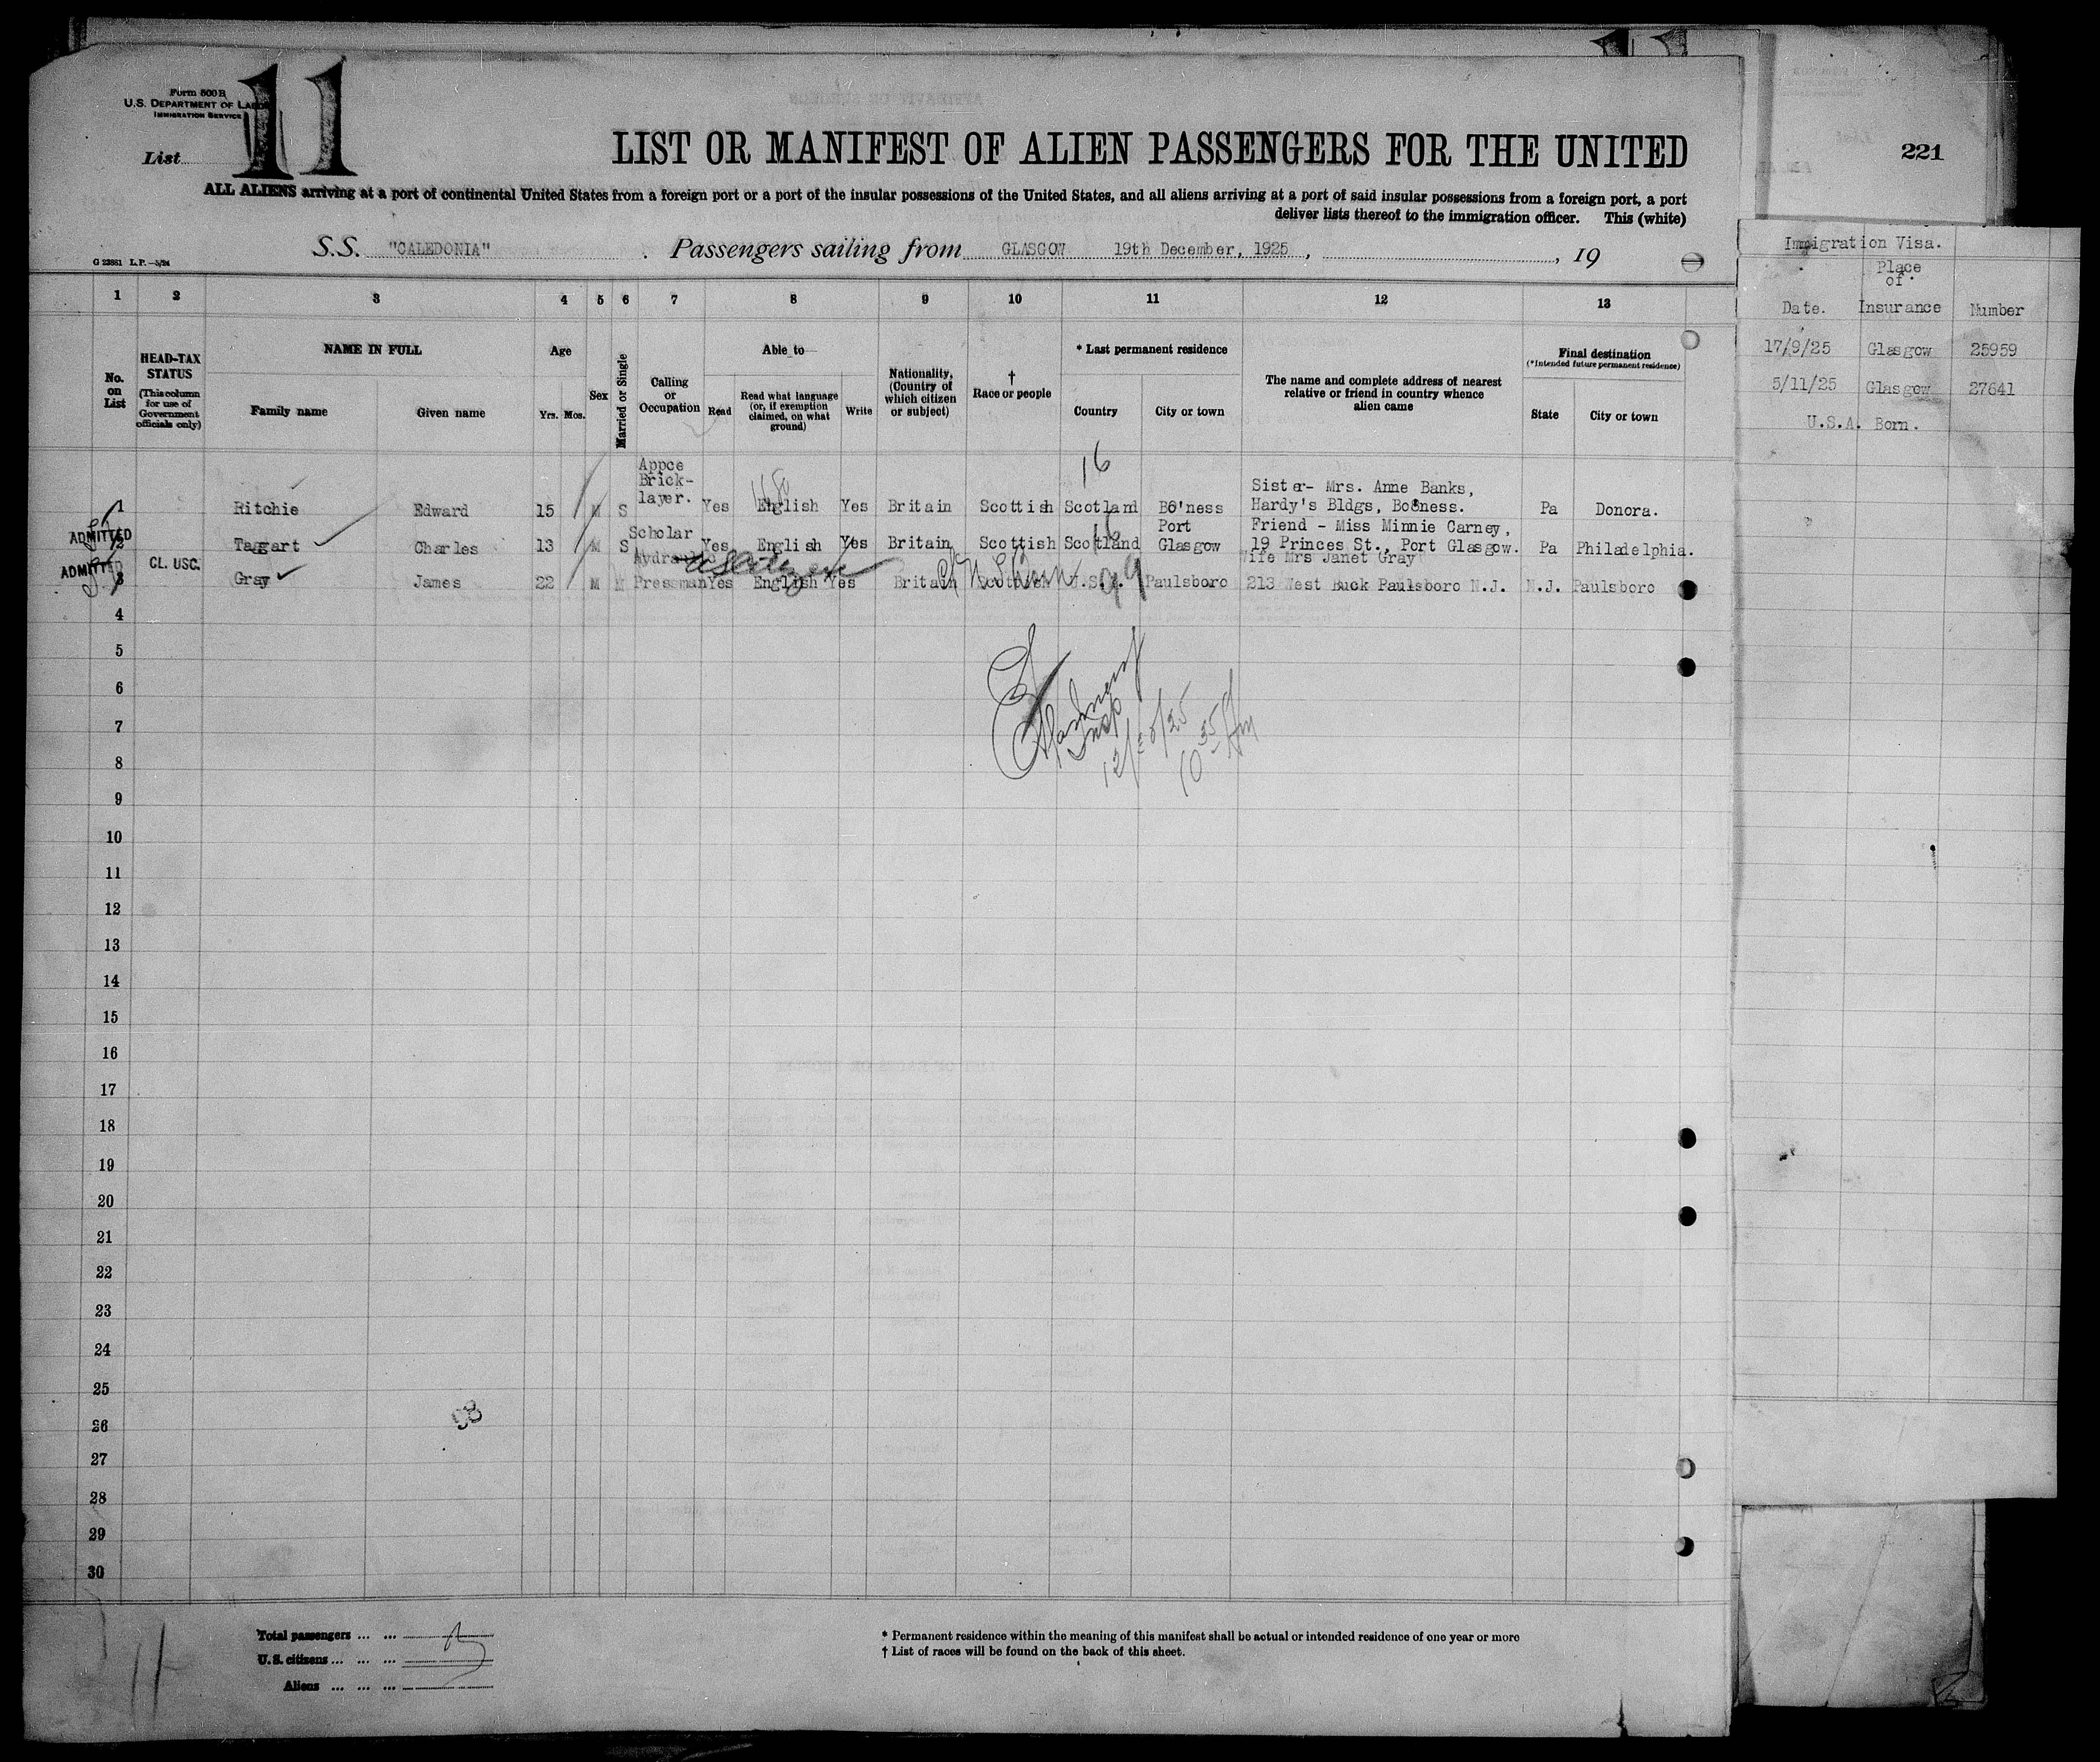 Form 500 B
U.S. DEPARTMENT OF LABOR
IMMIGRATION SERVICE
List
11
LIST OR MANIFEST OF ALIEN PASSENGERS FOR THE UNITED
221
ALL ALIENS arriving at a port of continental United States from a foreign port or a port of the insular possessions of the United States, and all aliens arriving at a port of said insular possessions from a foreign port, a port
deliver lists thereof to the immigration officer. This (white)
S.S. "CALEDONIA" . Passengers sailing from GLASGOW 19th December, 1925 , , 19
G 23861 L.P.—5/24
Immigration Visa.
Date. Place of Insurance Number
17/9/25 Glasgow 25959
5/11/25 Glasgow 27641
U.S.A. Born.
1 2 3 4 5 6 7 8 9 10 11 12 13
No. on List
HEAD-TAX STATUS (This column for use of Government officials only)
NAME IN FULL
Family name Given name
Age
Yrs. Mos.
Sex
Married or Single
Calling or Occupation
Able to
Read Read what language (or, if exemption claimed, on what ground) Write
Nationality, (Country of which citizen or subject)
† Race or people
* Last permanent residence
Country City or town
The name and complete address of nearest relative or friend in country whence alien came
Final destination
(*Intended future permanent residence)
State City or town
16
Appce Brick-layer.
Sister- Mrs. Anne Banks,
1 Ritchie Edward 15 M S Yes English Yes Britain Scottish Scotland Bo'ness Hardy's Bldgs, Boness. Pa Donora.
ADMITTED
Scholar Port Friend - Miss Minnie Carney,
2 Taggart Charles 13 M S Yes English Yes Britain Scottish Scotland Glasgow 19 Princes St., Port Glasgow. Pa Philadelphia.
ADMITTED
CL. USC.
US Citizen
Wife Mrs Janet Gray
3 Gray James 22 M M Pressman Yes English Yes Britain U.S.A. 99 Paulsboro 213 West Buck Paulsboro N.J. N.J. Paulsboro
4
5
6
7
Insp
8
10 35 Am
9
10
11
12
13
14
15
16
17
18
19
20
21
22
23
24
25
98
26
27
28
29
30
Total passengers ... ...
U.S. citizens ... ... ...
Aliens ... ... ...
11
* Permanent residence within the meaning of this manifest shall be actual or intended residence of one year or more
† List of races will be found on the back of this sheet.